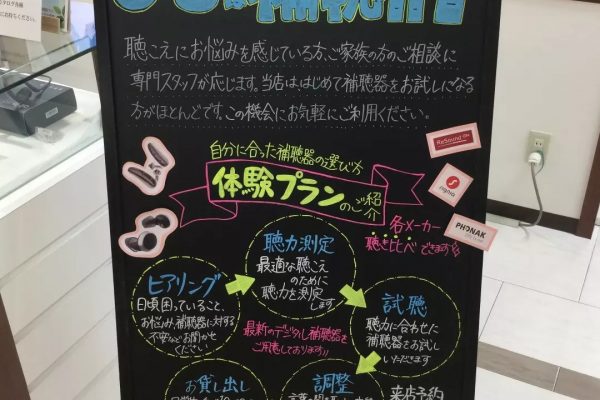 聴こえにお悩みを感じている方、ご家族の方のご相談に
専門スタッフが応じます。当店は、はじめて補聴器をお試しになる
方がほとんどです。この機会にお気軽にご利用ください。
自分に合った補聴器の選び方
体験プランのご紹介
ReSound GN
signia
PHONAK
各メーカー
聴き比べできます
聴力測定
最適な聴こえ
のために
聴力を測定
します
ヒアリング
日頃困っていること、
お悩み、補聴器に対する
不安などお聞かせ
ください
試聴
聴力に合わせた
補聴器をお試し
いただきます
最新のデジタル補聴器を
ご用意しております!!
お貸し出し
調整
来店予約